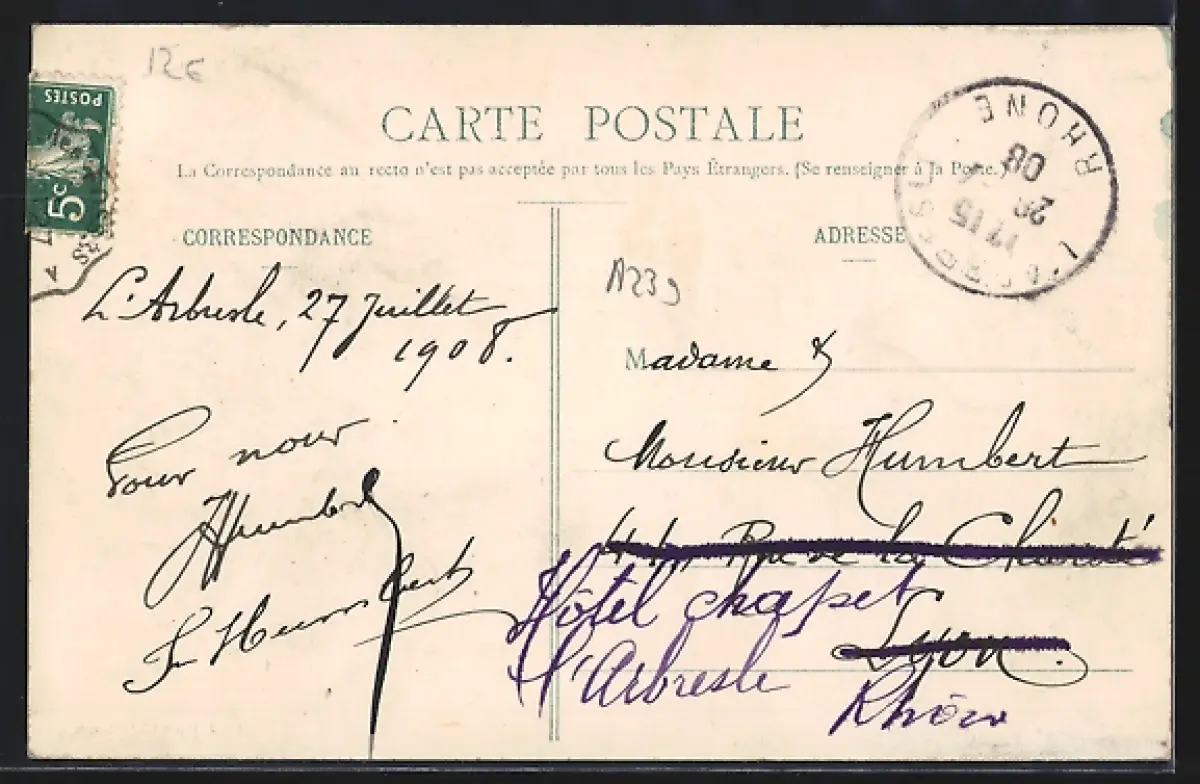 12€
POSTES
5c
CARTE POSTALE
La Correspondance au recto n'est pas acceptée par tous les Pays Étrangers. (Se renseigner à la Poste.)
RHONE
17 15
28
08
CORRESPONDANCE
ADRESSE
A239
L'Arbresle, 27 Juillet
1908.
Pour nous
Humbert
Humbert
Madame &
Monsieur Humbert
44, Rue de la Charité
Lyon.
Hôtel Chapet
L'Arbresle
Rhône